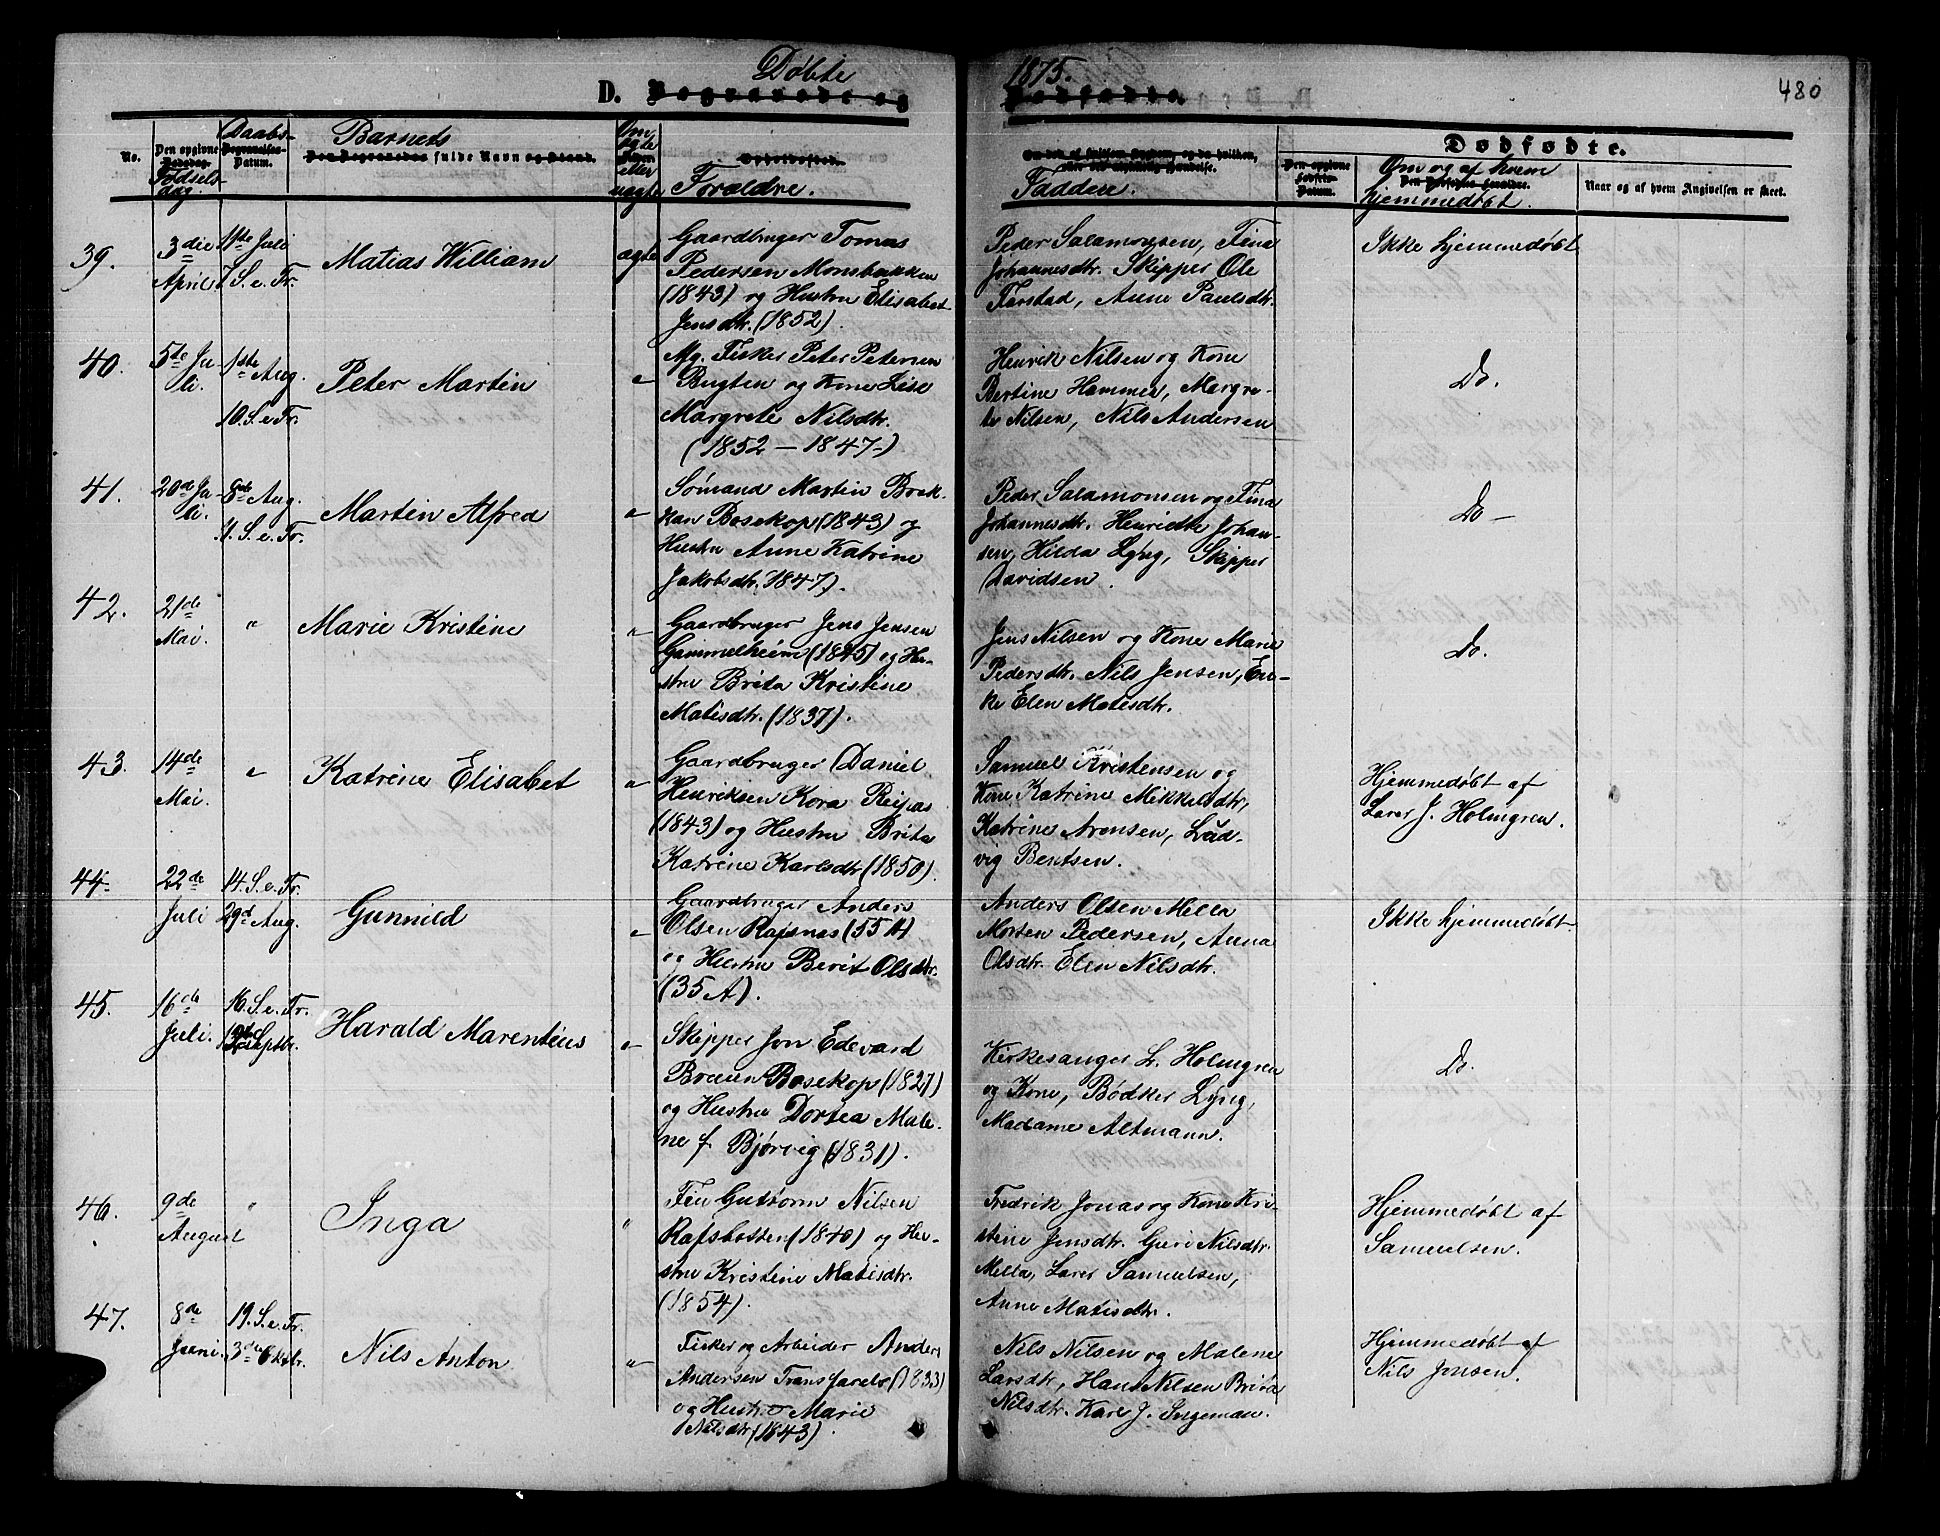 Døbte 1875.
480
D. Begravede og Dødfødte.
Dødfødte.
No.
Den opgivne Dødsdag Fødselsdag.
Daabs- Begravelses- Datum.
Barnets
Den Begravedes fulde Navn og Stand.
Om ægte eller uægte
Opholdssted.
Forældre.
Faddere.
Den opgivne Fødsels- Datum.
Om og af hvem hjemmedøbt.
Naar og af hvem Angivelsen er skeet.
39.
3die April
1ste Juli
7 S. e. Tr.
Matias William
ægte
Gaardbruger Tomas
Pedersen Monsbakken
(1843) og Hustru Elisabet
Jensdtr. (1852).
Peder Salamonsen, Fina
Johannesdtr. Skipper Ole
Farstad, Anne Paulsdtr.
Ikke hjemmedøbt
40.
5te Juli.
1ste Aug.
10. S. e. Tr.
Peter Martin
"
Mg. Fisker Peter Petersen
Bugten og Kone Lise
Margrete Nilsdtr.
(1852 — 1847)
Henrik Nilsen og Kone
Bertine Hammer, Margre-
te Nilsen, Nils Andersen
Do.
41.
20de Juli.
8de Aug.
11. S. e. Tr.
Martin Alfred
"
Sømand Martin Brek-
kan Bosekop (1843) og
Hustru Anne Katrine
Jakobsdtr. 1847).
Peder Salamonsen og Fina
Johannesdtr. Henriette Johan-
sen, Hilda Lyng, Skipper
Davidsen.
Do —
42.
21de Mai.
"
Marie Kristine
"
Gaardbruger Jens Jensen
Gammelheim (1845) og Hu-
stru Brita Kristine
Matisdtr. (1837).
Jens Nilsen og Kone Marie
Pedersdtr. Nils Jensen, En-
ke Elen Matisdtr.
Do.
43.
14de Mai.
"
Katrine Elisabet
"
Gaardbruger Daniel
Henriksen Kora Reipas
(1843) og Hustru Brita
Katrine Karlsdtr (1850).
Samuel Kristensen og
Kone Katrine Mikkelsdtr,
Katrine Aronsen, Lud-
vig Bentsen.
Hjemmedøbt af
Lærer J. Holmgren.
44.
22de Juli
14. S. e. Tr.
29d Aug.
Gunnild
"
Gaardbruger Anders
Olsen Rafsnas (55 A)
og Hustru Berit Olsdtr.
(35 A).
Anders Olsen Mella
Morten Pedersen, Anna
Olsdtr. Elen Nilsdtr.
Ikke hjemmedøbt
45.
16de Juli.
16. S. e. Tr.
Septbr.
Harald Marentius
"
Skipper Jon Edevard
Breuen Bosekop (1827)
og Hustru Dortea Male-
ne f. Bjørvig (1831).
Kirkesanger L. Holmgren
og Kone, Bødker Lyng,
Madame Altmann.
Do.
46.
9de August
"
Inga
"
Fin Guttorm Nilsen
Rafsbotten (1840) og Hu-
stru Kristine Matisdtr.
(1854).
Fredrik Jonas og Kone Kri-
stine Jensdtr. Guri Nilsdtr.
Mella, Lærer Samuelsen,
Anne Matisdtr.
Hjemmedøbt af
Samuelsen.
47.
8de Juni.
19. S. e. Tr.
3die Oktbr.
Nils Anton
"
Fisker og Arbeider Anders
Andersen Transfarelv (1833)
og Hustru Marie
Nilsdtr (1843).
Nils Nilsen og Malene
Larsdtr, Hans Nilsen Brita
Nilsdtr. Karl J. Ingeman.
Hjemmedøbt af
Nils Jensen.